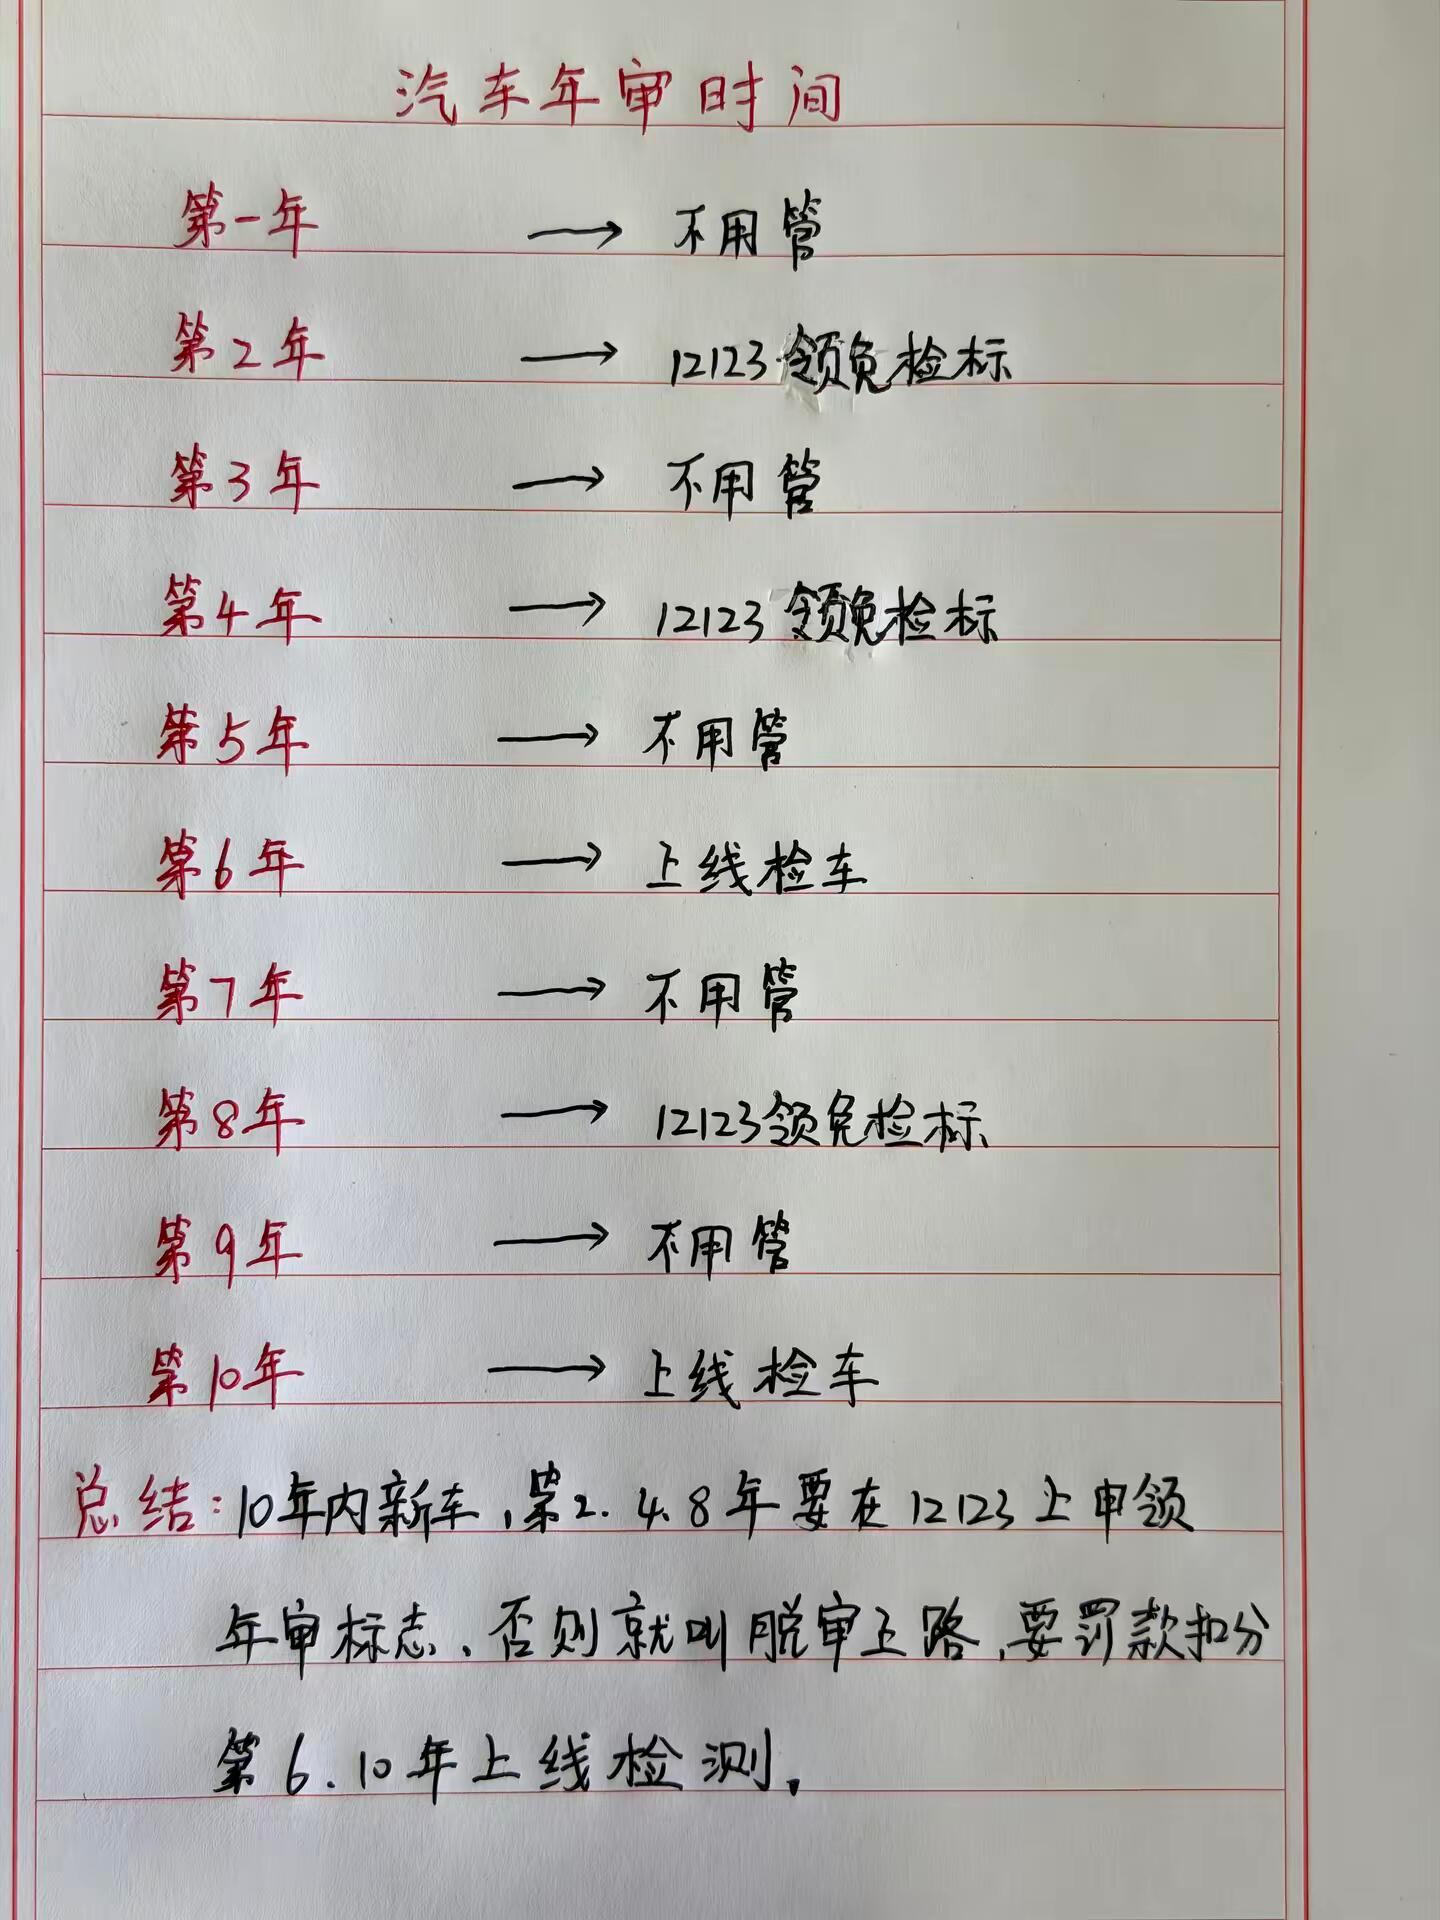 汽车年审时间
第一年 → 不用管
第2年 → 12123领免检标
第3年 → 不用管
第4年 → 12123领免检标
第5年 → 不用管
第6年 → 上线检车
第7年 → 不用管
第8年 → 12123领免检标
第9年 → 不用管
第10年 → 上线检车
总结：10年内新车，第2.4.8年要在12123上申领
年审标志、否则就叫脱审上路，要罚款扣分
第6.10年上线检测。